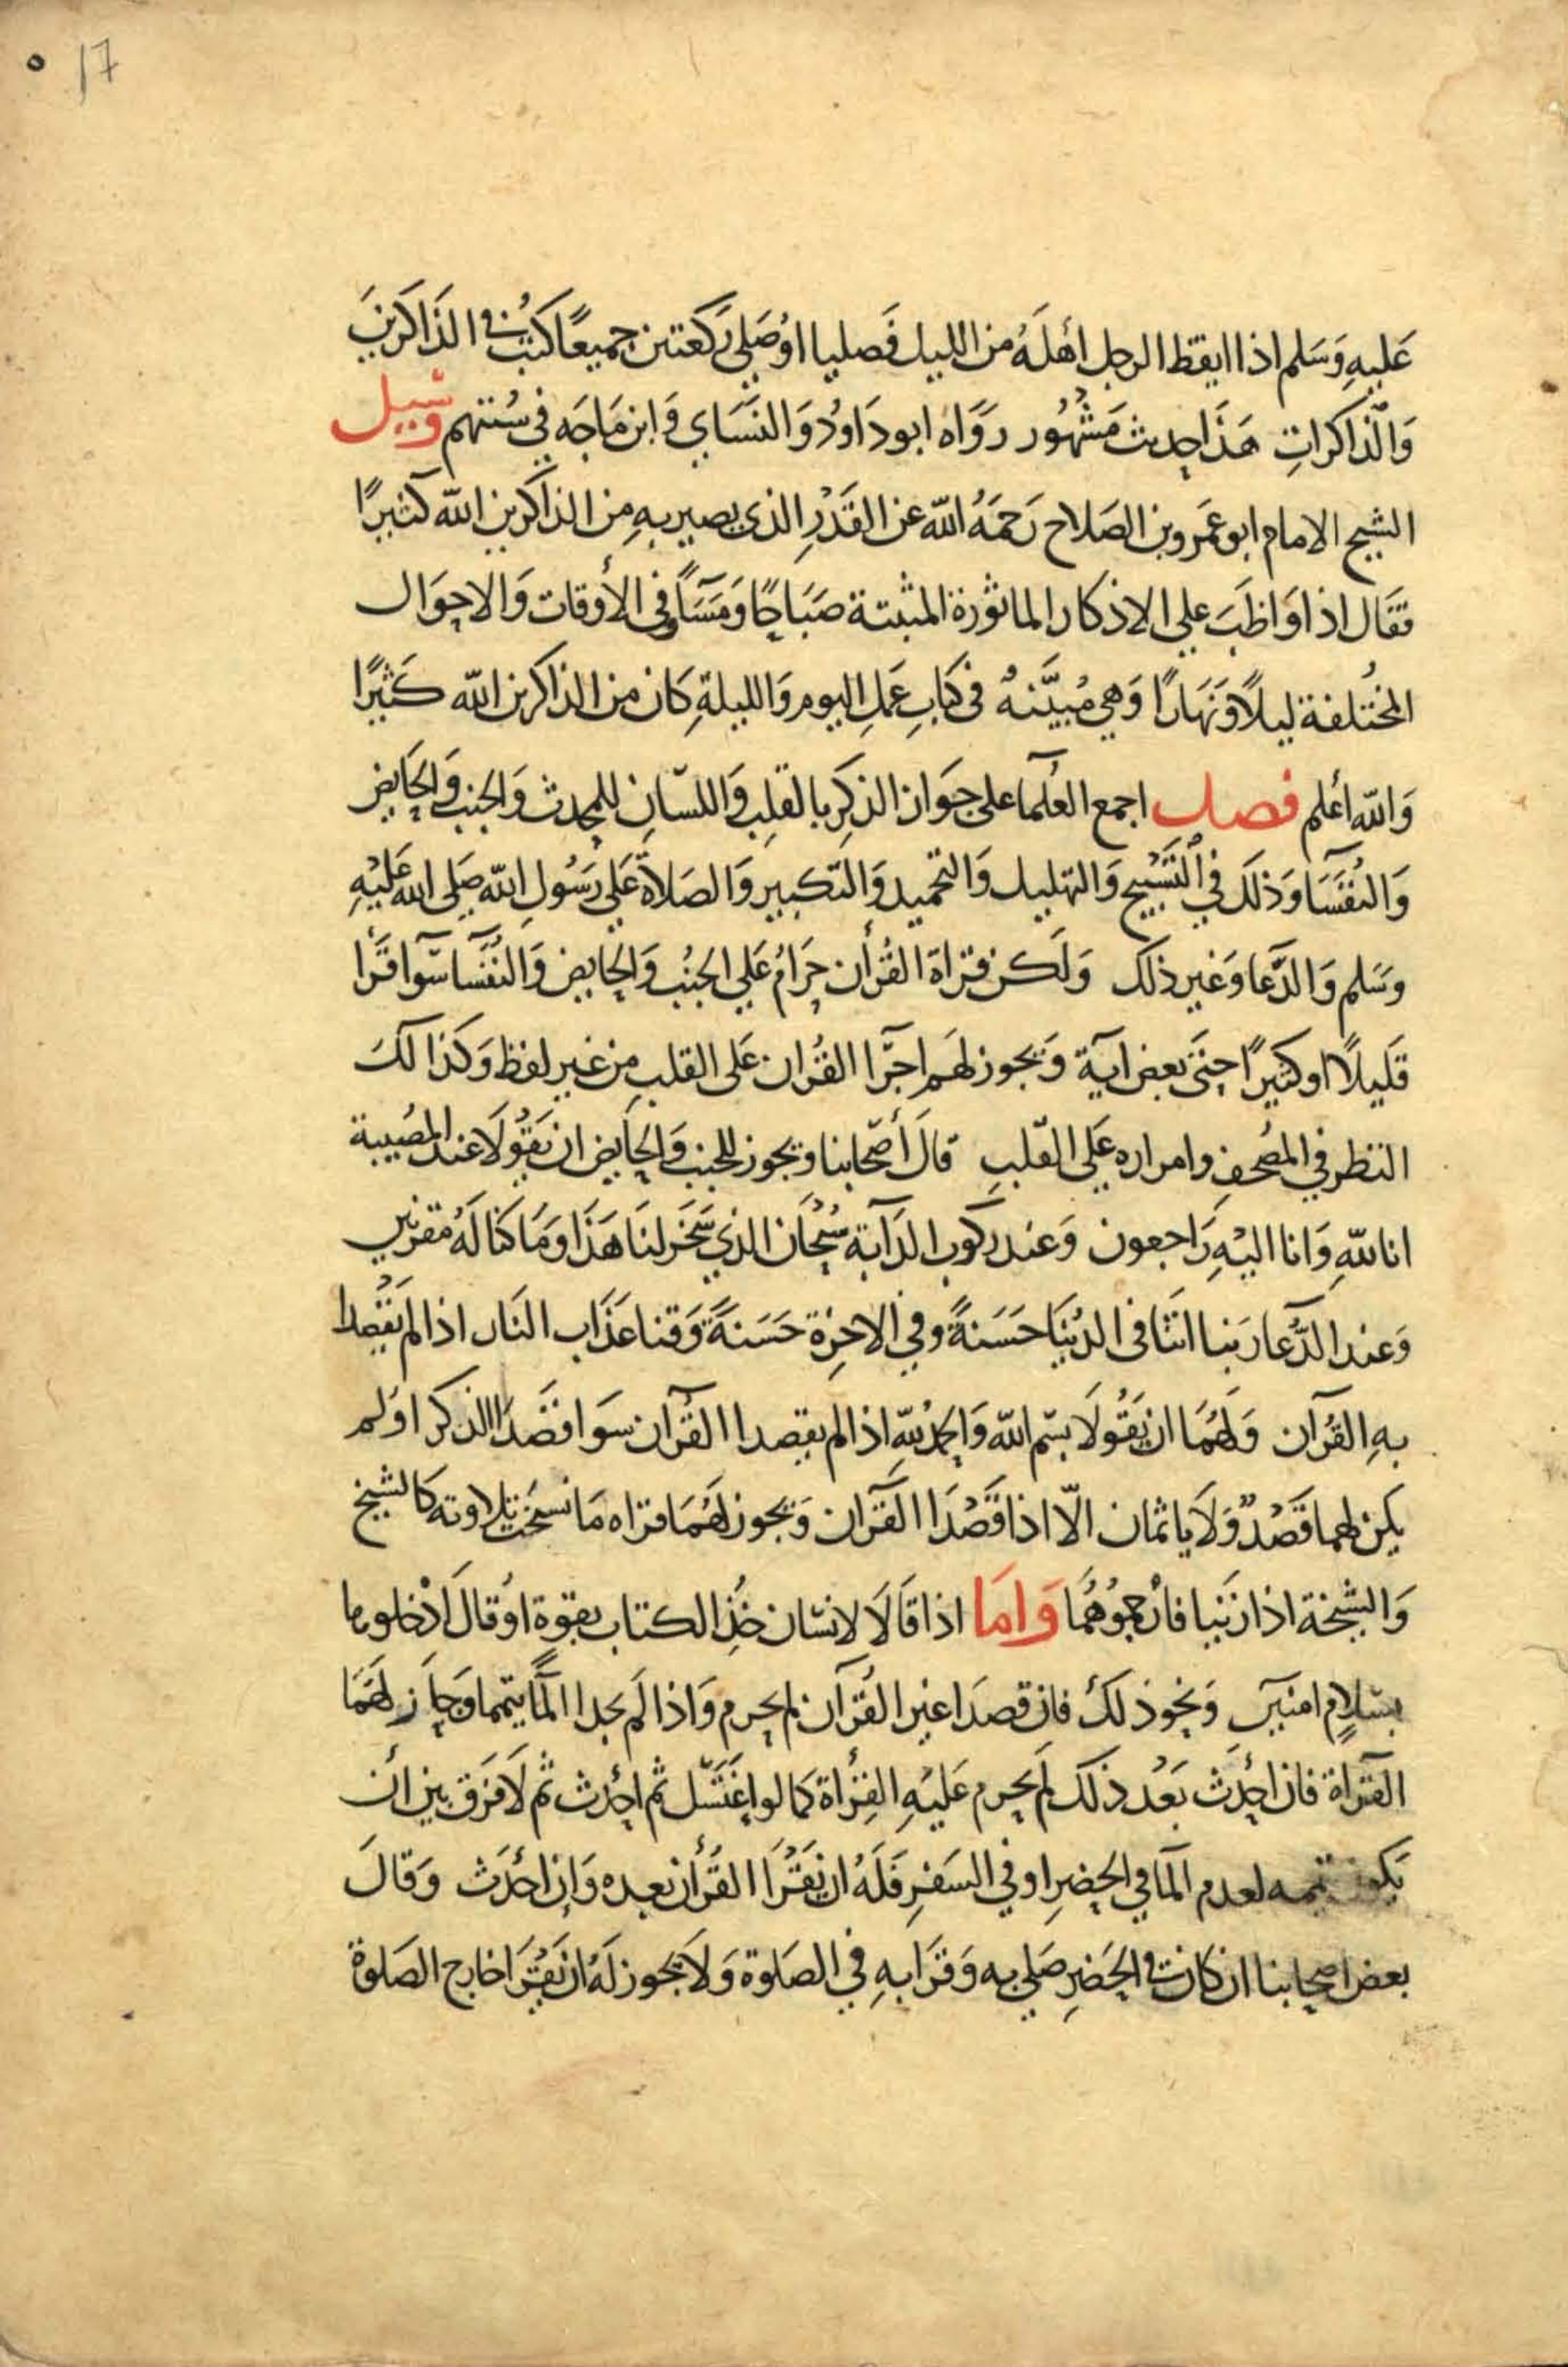 17 ٥
عَليهِ وَسَلم اذا ايقظ الرجل أهلَهُ من الليل فَصليا اوُ صَلي رَكعتين جميعًا كُتبَ في الذَاكَرينَ
وَالذاكرَاتِ هَذَا حديث مَشْهُور رَوَاه ابو دَاودُ وَالنسَاي وَابن مَاجَه في سُننهم وَسُيل
الشيخ الامام ابو عَمَرو بن الصَلاح رَحمَهُ الله عن القَدْرِ الذي يصير بهِ مِن الذاكرين الله كثيرًا
فقَال اذا وَاظبَ علي الاذكار الماثورة المثبتة صَبَاحًا وَمَسَآءً في الأوقات وَالاحوَال
المختُلفة ليلاً وَنَهَارًا وَهي مُبيَّنهُ في كتابِ عَمَلِ اليوم وَالليلةِ كان من الذاكرين الله كَثيرًا
وَالله اعْلم فصل اجمع العُلمآ على جوَاز الذكِر بالقلبِ وَاللسَان للمحدث وَالجنب وَالحَايض
وَالنُفسَآ وَذلَك في التَسْبيح وَالتهليل وَالتحميد وَالتكبير وَالصَلاة عَلي رَسُولِ الله صَلى الله عَليْهِ
وسَلم وَالدَّعا وَغير ذلك وَلَكن قراة القُرأن حرَامُ عَلي الجنبُ وَالحايض وَالنُفسَآ سَوآ قرَا
قَليلاً او كثيرًا حتَى بعض اية وَيجوز لهَم اجرَّا القُران على القلبِ من غير لفظ وَكذا لكَ
النظر في المصُحف وامراره عَلي القلبِ قالَ أصحَابنا ويجوز للجنب وَالحَايض ان يَقُولاَ عند المصُيبة
انا للهِ وَانا اليْهِ رَاجعون وَعند ركوب الدَآبة سُبحَان الذي سَخر لنَا هَذَا وَمَا كنا لَهُ مقرنين
وَعند الدَّعا رَبنا اتنَا في الدُنيَا حَسَنةً وفي الاخِرَة حَسَنةً وَقنا عَذَاب النَار اذا لم يَقْصِدا
بهِ القُرآن وَلهُمَا ان يَقُولاَ بسْم الله وَالحمدُ للهِ اذا لم يقصدا القُرآن سوَا قصَدا الذكر اوَ لم
يكن لهما قَصْدٌ وَلاَ ياثمان الاّ اذا قَصْدَا القرَآن وَيجوز لهَمَا قراه مَا نسخَت تلاوته كالشيخ
وَالشيخة اذا زنيا فارجموُهُمَا وَامَا اذا قالاَ لانسَان خُذِ الكتاب بقوة اوُ قالَ ادْخلوها
بسَلاٍم امنين وَنحو ذلكَ فان قصدَا غير القُرآن لم يحرم وَاذا لم يجدا المآ يتمما وَجاز لهَمَا
القرَآة فان احدَث بَعْد ذلك لم يحرم عَليْهِ القرأة كما لو اغتَسَل ثم احدَث ثم لاَ فَرَق بين أن
يكون تيممه لعدم المآ في الحضرِ او في السَفرِ فَلَهُ ان يَقْرَا القرَأن بعده وَإن احْدَث وَقالَ
بعض اصحابنا ان كان في الحَضرِ صَلي به وَقرَا بهِ في الصَلوة وَلاَ يجوز لَهُ ان يَقرَا خارج الصَلوة